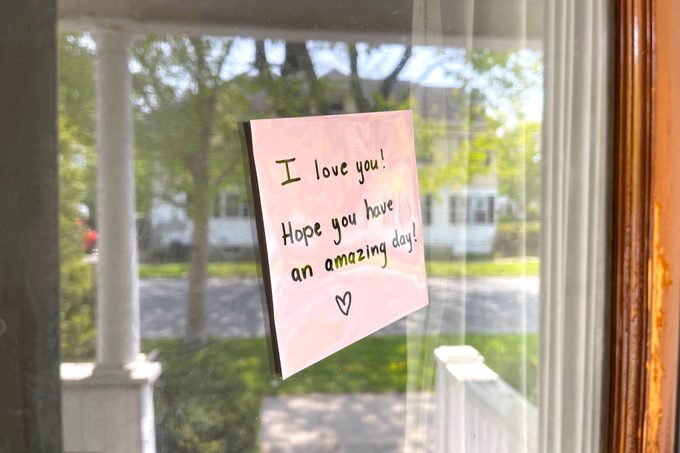 I love you!
Hope you have
an amazing day!
♡